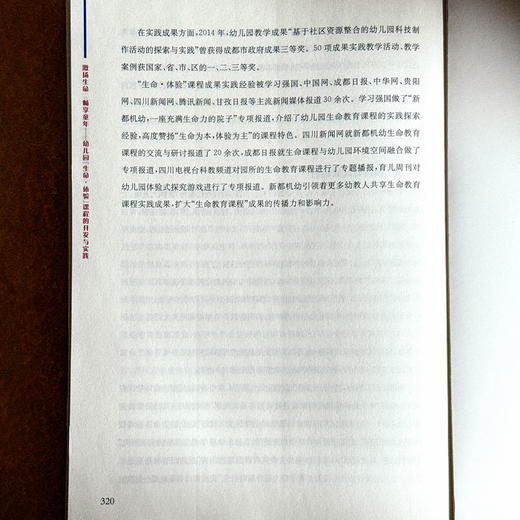 在实践成果方面，2014年，幼儿园教学成果“基于社区资源整合的幼儿园科技制
作活动的探索与实践”曾获得成都市政府成果三等奖。50项成果实践教学活动、教学
案例获国家、省、市、区的一、二、三等奖。
“生命·体验”课程成果实践经验被学习强国、中国网、成都日报、中华网、贵阳
网、四川新闻网、腾讯新闻、甘孜日报等主流新闻媒体报道30余次。学习强国做了“新
都机幼，一座充满生命力的院子”专项报道，介绍了幼儿园生命教育课程的实践探索
经验，高度赞扬“生命为本，体验为主”的课程特色。四川新闻网就新都机幼生命教育
课程的交流与研讨报道了20余次，成都日报就生命课程与幼儿园环境空间融合做了
专项报道，四川电视台科教频道对园所的生命教育课程进行了专题播报，育儿周刊对
幼儿园体验式探究游戏进行了专项报道。新都机幼引领着更多幼教人共享生命教育
课程实践成果，扩大“生命教育课程”成果的传播力和影响力。
激扬生命 畅享童年——幼儿园“生命·体验”课程的开发与实践
320